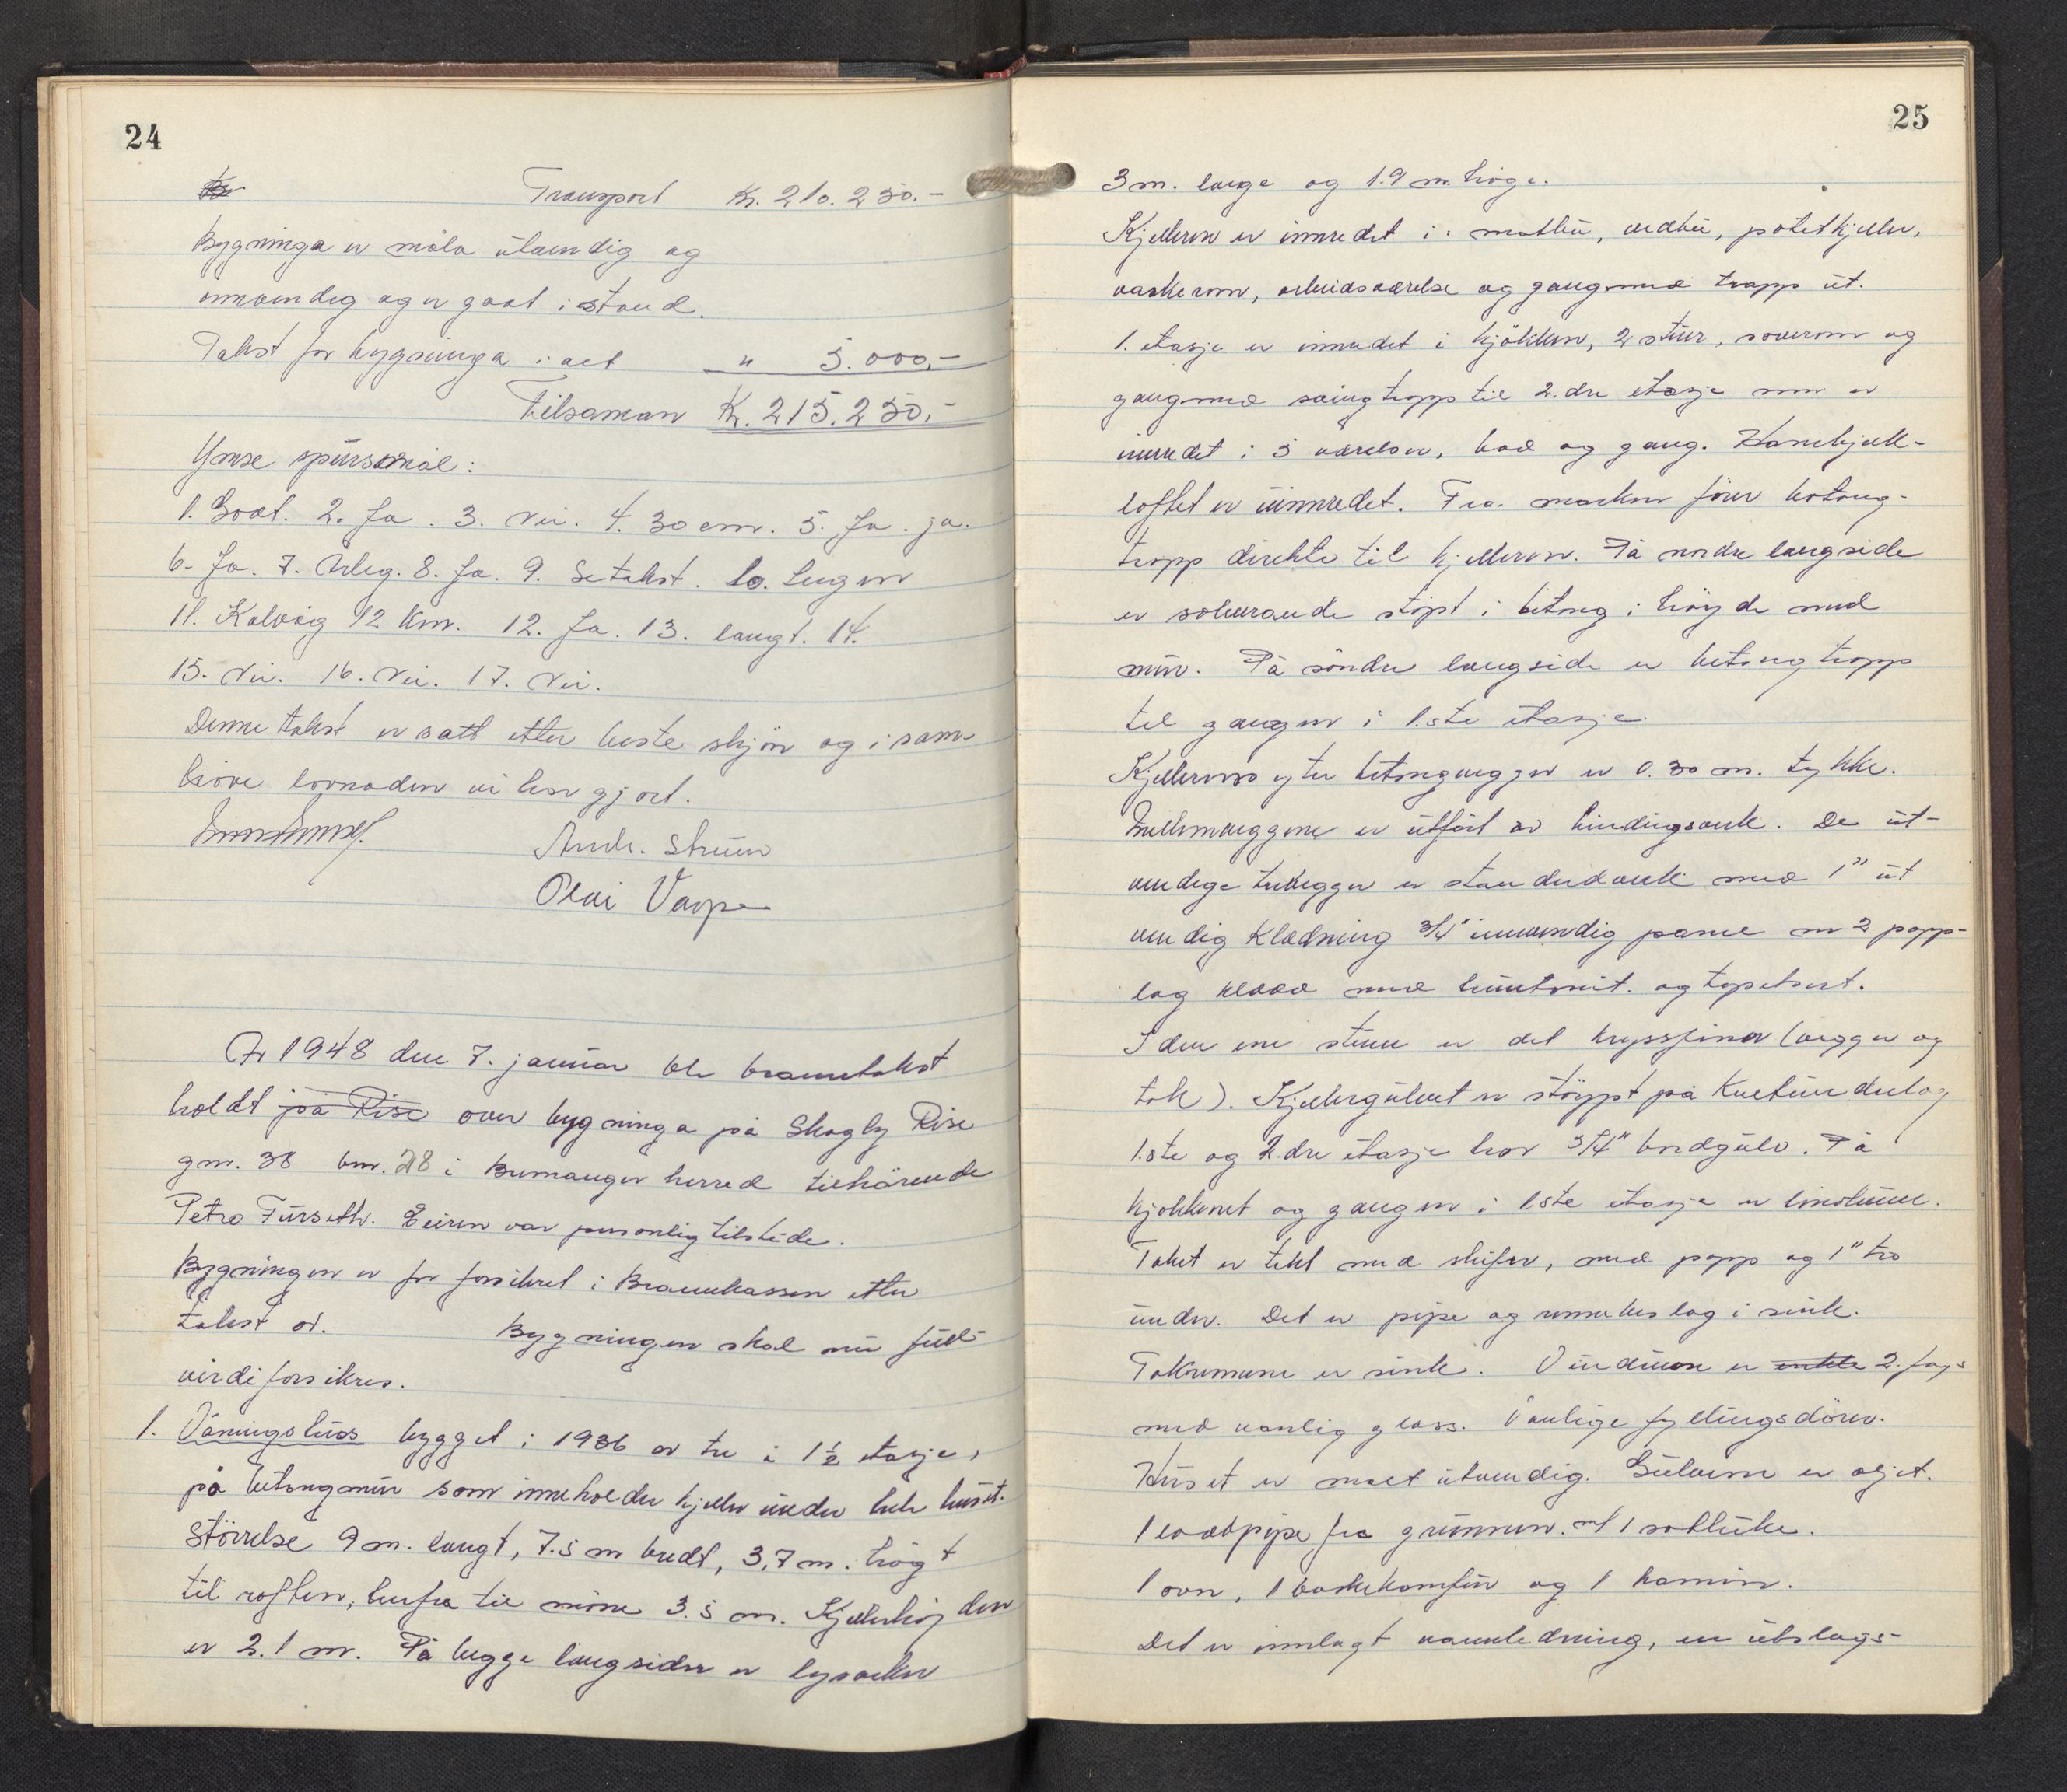 24
Transport Kr. 210.250.-
Bygninga er måla utvendig og
innvendig og er godt i stand.
Takst for bygninga i alt " 5.000,-
Tilsaman Kr. 215.250,-
Ymse spursmål:
1. Godt. 2. Ja. 3. Nei. 4. 30 cm. 5. Ja. ja.
6. Ja. 7. Årleg. 8. Ja. 9. Se takst. 10. Ingen
11. Kalvåg 12 km. 12. Ja. 13. langt. 14.
15. Nei. 16. Nei. 17. Nei.
Denne takst er satt etter beste skjön og i sam-
höve lovnaden vi har gjort.
Andr. Strøm
Olai Varpe
År 1948 den 7. januar ble branntakst
holdt på Rise over bygninga på Skogly Rise
gnr. 38 bnr. 28 i Bremanger herred tilhörende
Petra Furseth. Eieren var personlig tilstede.
Bygningen er för forsikret i Brannkassen etter
takst av. Bygningen skal nu full-
verdi forsikres.
1. Våningshus bygget i 1936 av tre i 1½ etasje,
på betongmur som inneholder kjeller under hele huset.
Störrelse 9 m. langt, 7.5 m bredt, 3,7 m. högt
til raften, herfra til möne 3.5 m. Kjellerhöjden
er 2.1 m. På begge langsider er lysarker
25
3 m. lange og 1.9 m. höge.
Kjelleren er innredet i: matbu, vedbu, potetkjeller,
vaskerom, arbeidsværelse og gang med trapp ut.
1. etasje er innredet i kjökken, 2 stuer, soverom og
gang med svingtrapp til 2.dre etasje som er
innredet i 3 værelser, bad og gang. Hanebjelk-
loftet er uinnredet. Fra marken förer betong-
trapp direkte til kjelleren. På nordre langside
er solveranda stöpt i betong i höyde med
mur. På söndre langside er betongtrapp
til gangen i 1.ste etasje.
Kjellerens ytter betongvegger er 0.30 m. tykke.
Mellemveggene er utfört av bindingsverk. De ut-
vendige trevegger er standerverk med 1" ut
vendig klædning 3/4" innvendig panel m 2 papp-
lag kledd med huntonit. og tapetsert.
I den ene stuen er det kryssfiner (vegger og
tak). Kjellergulvet er stöypt på kultunderlag
1.ste og 2.dre etasje har 5/4" bordgulv. På
kjökkenet og gangen i 1ste etasje er linoleum.
Taket er tekt med skifer, med papp og 1" tro
under. Det er pipe og rennebeslag i sink.
Takrennene er sink. Vinduene er enkle 2. fags
med vanlig glass. Vanlige fyllingsdörer.
Huset er malt utvendig. Gulvene er oljet.
1 loddpipe fra grunnen. m/ 1 sotluke.
1 ovn, 1 vaskekomfur og 1 kamin.
Det er innlagt vannledning, en utslags-